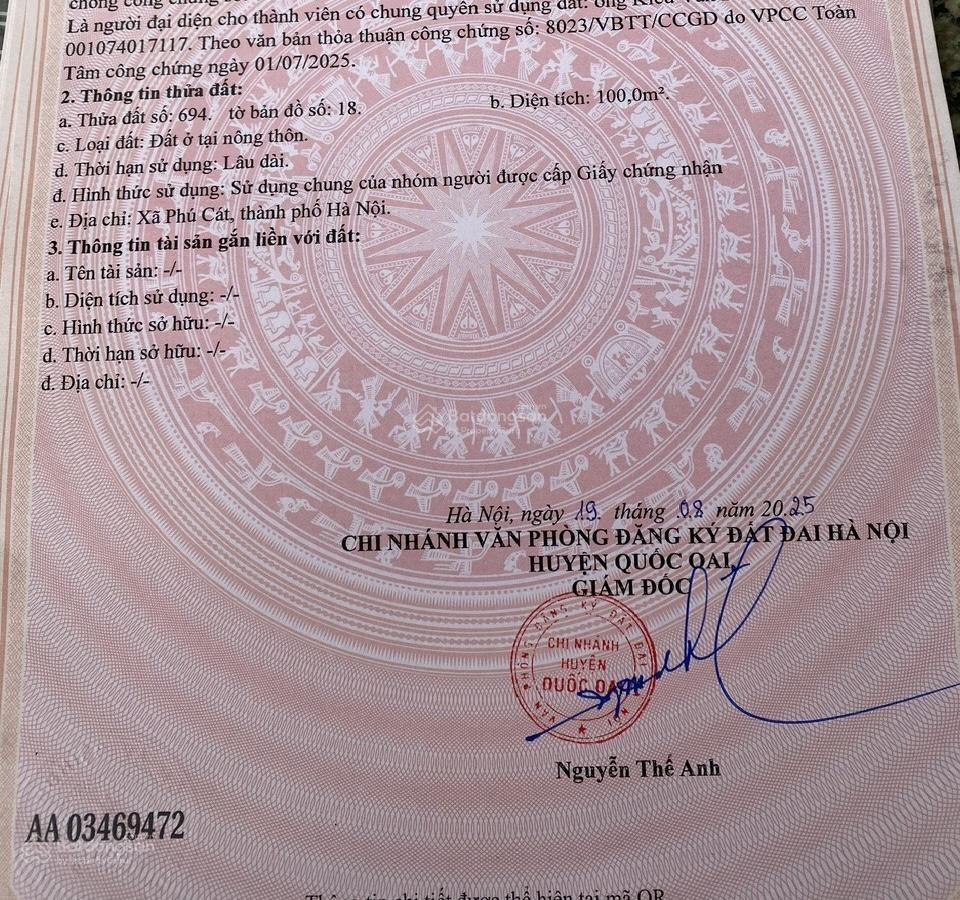 Là người đại diện cho thành viên có chung quyền sử dụng đất: ông Kiều
001074017117. Theo văn bản thỏa thuận công chứng số: 8023/VBTT/CCGD do VPCC Toàn
Tâm công chứng ngày 01/07/2025.
2. Thông tin thửa đất:
a. Thửa đất số: 694. tờ bản đồ số: 18. b. Diện tích: 100,0m².
c. Loại đất: Đất ở tại nông thôn.
d. Thời hạn sử dụng: Lâu dài.
đ. Hình thức sử dụng: Sử dụng chung của nhóm người được cấp Giấy chứng nhận
e. Địa chỉ: Xã Phú Cát, thành phố Hà Nội.
3. Thông tin tài sản gắn liền với đất:
a. Tên tài sản: -/-
b. Diện tích sử dụng: -/-
c. Hình thức sở hữu: -/-
d. Thời hạn sở hữu: -/-
đ. Địa chỉ: -/-
Batdongsan
Hà Nội, ngày 19. tháng 08 năm 20.25
CHI NHÁNH VĂN PHÒNG ĐĂNG KÝ ĐẤT ĐAI HÀ NỘI
HUYỆN QUỐC OAI
GIÁM ĐỐC
VĂN PHÒNG ĐĂNG KÝ ĐẤT ĐAI HÀ NỘI
CHI NHÁNH
HUYỆN
QUỐC OAI
Nguyễn Thế Anh
AA 03469472
Batdongsan
Thông tin chi tiết được thể hiện tại mã QR